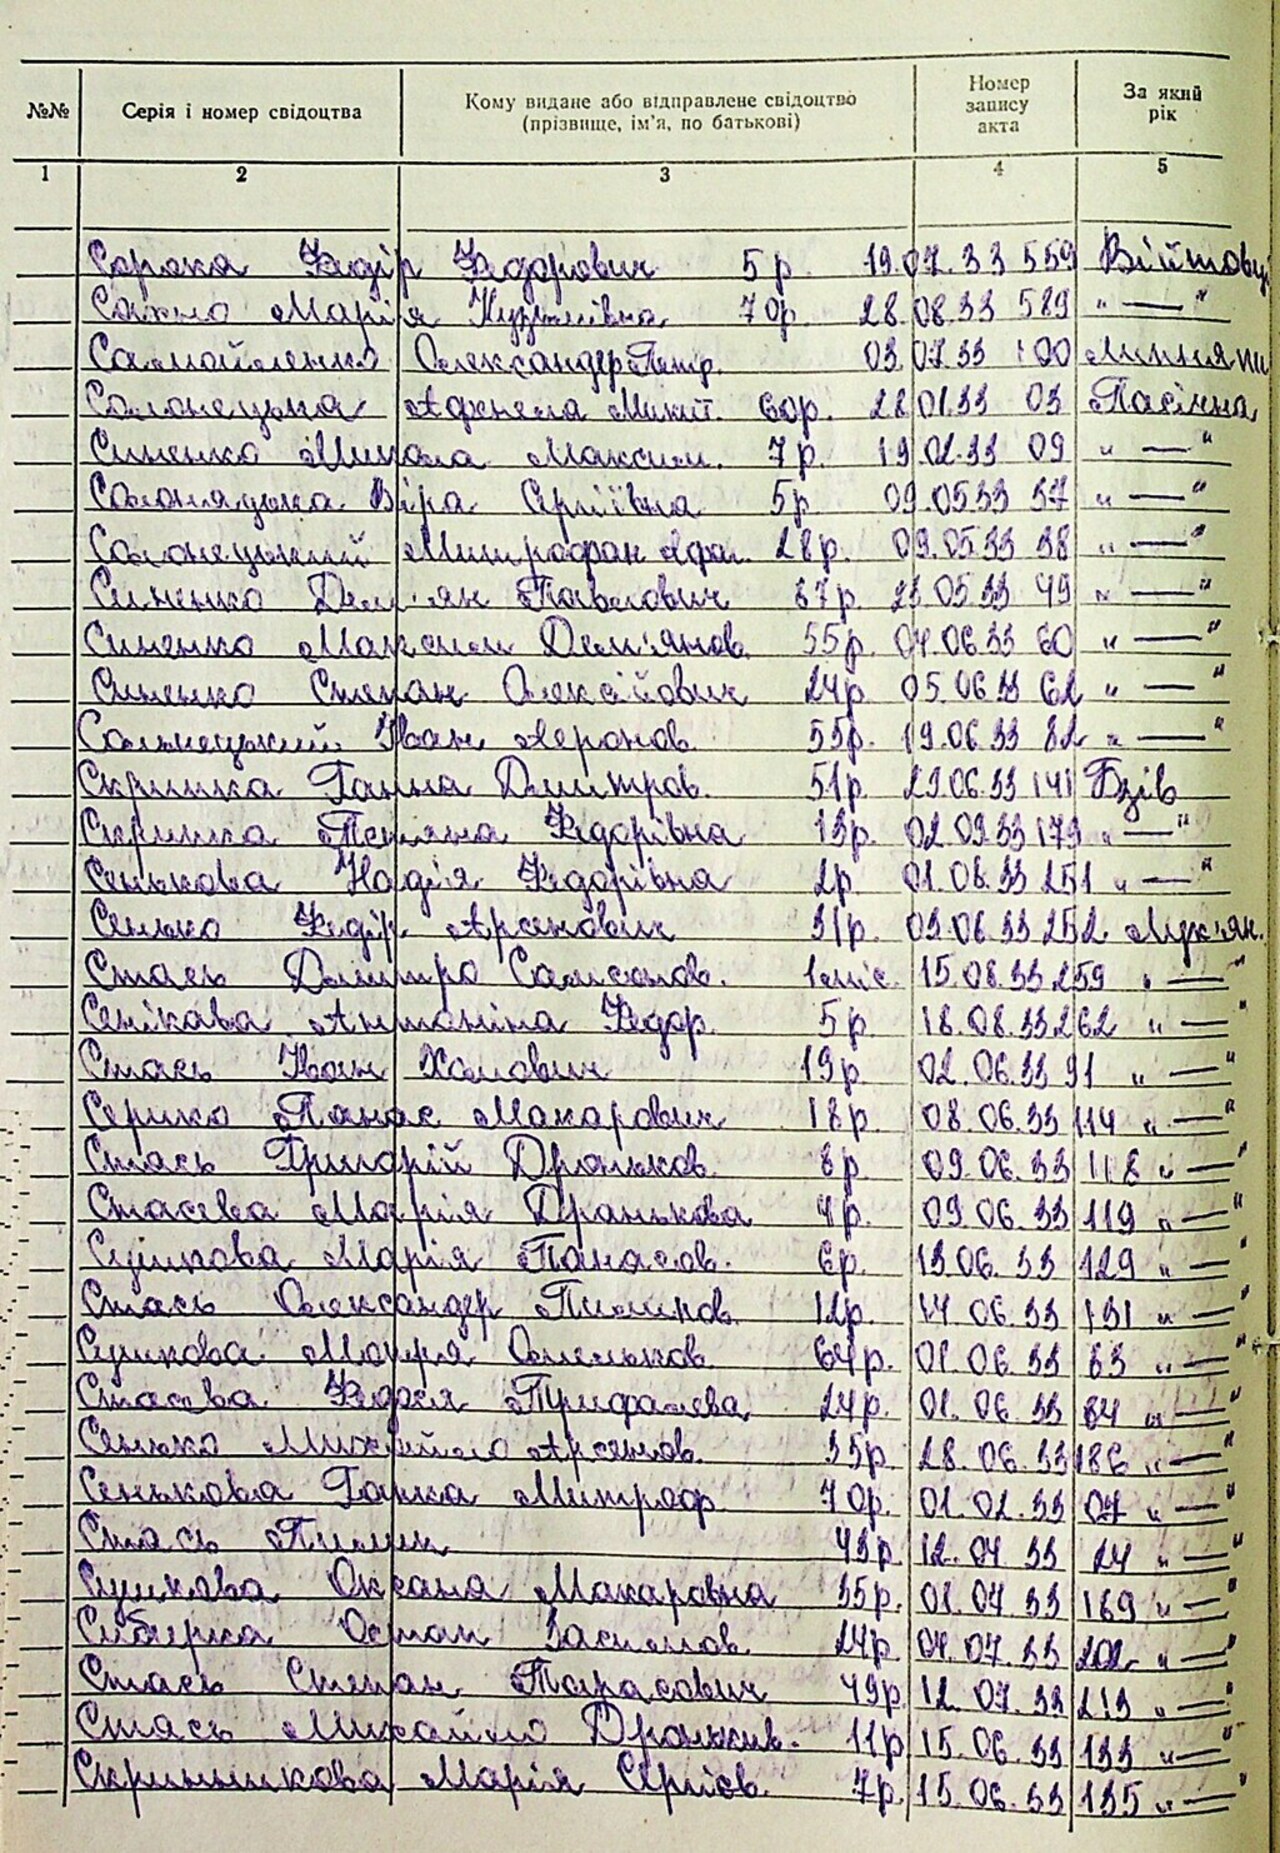 №№ Серія і номер свідоцтва Кому видане або відправлене свідоцтво (прізвище, ім'я, по батькові) Номер запису акта За який рік
1 2 3 4 5
Сорока Федір Федорович 5р 19.07.33 559 Війтовці
Сахно Марія Кузьмівна 70р. 28.08.33 589 " — "
Самойленко Олександер Петр. 03.07.33 100
Солонецька Микит. 60р. 28.01.33 03 Пасічна
Синенко Микола Максим. 7р. 19.02.33 09 " — "
Солоняцька Віра Сергіївна 5р 09.05.33 37 " — "
Солонецький Митрофан 28р. 09.05.33 38 " — "
Синенко Дем'ян Павлович 67р. 23.05.33 49 " — "
Синенко Максим Дем'янов. 55р. 04.06.33 60 " — "
Синенко Степан Олексійович 24р. 05.06.33 62 " — "
Солонецький Іван 55р. 19.06.33 82 " — "
Скрипка Ганна Дмитров. 51р. 29.06.33 141 Бзів
Скрипка Тетяна Федорівна 13р. 02.09.33 179 " — "
Сенькова Надія Федорівна 2р. 01.08.33 251 " — "
Сенько Федір Арсенович 31р. 03.08.33 252 Лук'ян.
Стась Дмитро Самсонов. 1 міс. 15.08.33 259 " — "
Сенікова Антоніна Федор. 5р 18.08.33 262 " — "
Стась Іван Хомович 19р. 02.06.33 91 " — "
Серико Панас Макарович 18р. 08.06.33 114 " — "
Стась Григорій Дроньков. 8р. 09.06.33 118 " — "
Стасева Марія Дронькова 4р. 09.06.33 119 " — "
Сушкова Марія Панасов. 6р. 13.06.33 129 " — "
Стась Олександер Пилипов. 12р. 14.06.33 131 " — "
Сушкова Марія Омельков. 64р. 01.06.33 83 " — "
Стасева Федося Трифалева 24р. 01.06.33 84 " — "
Сенько Михайло Арсенов. 35р. 28.06.33 186 " — "
Сенькова Ганка Митроф. 70р. 01.02.33 07 " — "
Стась Пилип 43р. 12.04.33 24 " — "
Сушкова Оксана Макаровна 35р. 01.07.33 169 " — "
Остап Василов. 24р. 04.07.33 202 " — "
Стась Степан Тарасович 49р. 12.07.33 213 " — "
Стась Михайло 11р 15.06.33 133 " — "
Скринникова Марія Сергієв. 7р. 15.06.33 135 " — "